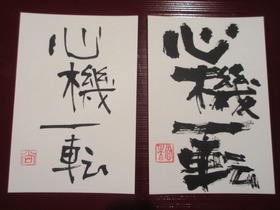 心機一転
心機一転